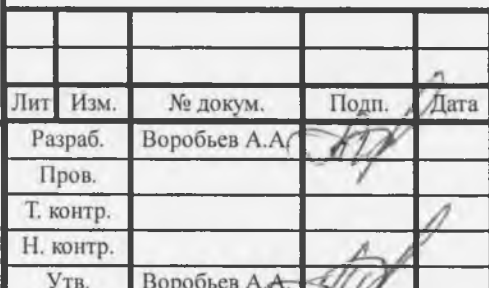 Лит Изм. № докум. Подп. Дата
Разраб. Воробьев А.А.
Пров.
Т. контр.
Н. контр.
Утв. Воробьев А.А.